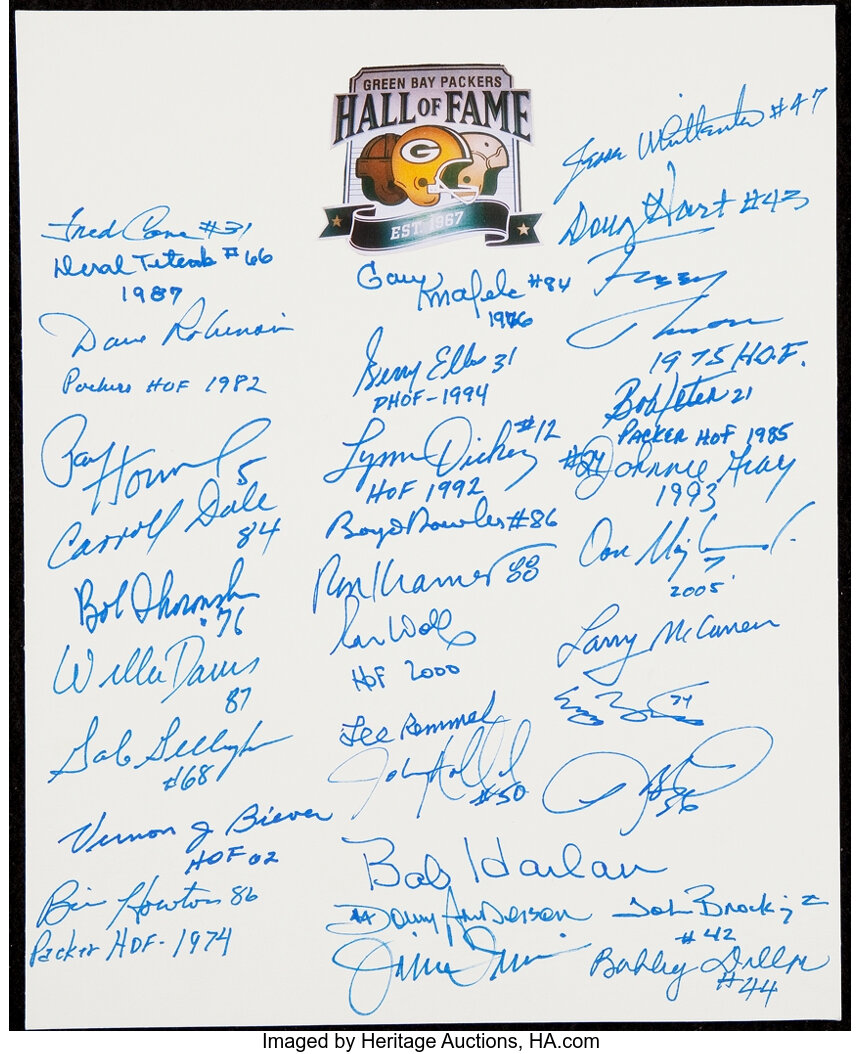 GREEN BAY PACKERS
HALL OF FAME
G
EST. 1967
Fred Cone #31
Deral Teteak #66
1987
Dave Robinson
Packers HOF 1982
Paul Hornung
5
Carroll Dale
84
Bob Skoronski
76
Willie Davis
87
Gale Gillingham
#68
Vernon J Biever
HOF 02
Bill Howton 86
Packer HOF-1974
Gary
Knafelc #84
1976
Gerry Ellis 31
PHOF-1994
Lynn Dickey #12
HOF 1992
Boyd Dowler #86
Ron Kramer 88
Ron Wolf
HOF 2000
Lee Remmel
#50
Bob Harlan
44 Donny Anderson
Jesse Whittenton #47
Doug Hart #43
Fuzzy
Thurston
1975 H.O.F.
Bob Jeter 21
PACKER HOF 1985
#24 Johnnie Gray
1993
Don Majkowski
7
2005
Larry McCarren
74
56
John Brockington
#42
Bobby Dillon
#44
Imaged by Heritage Auctions, HA.com